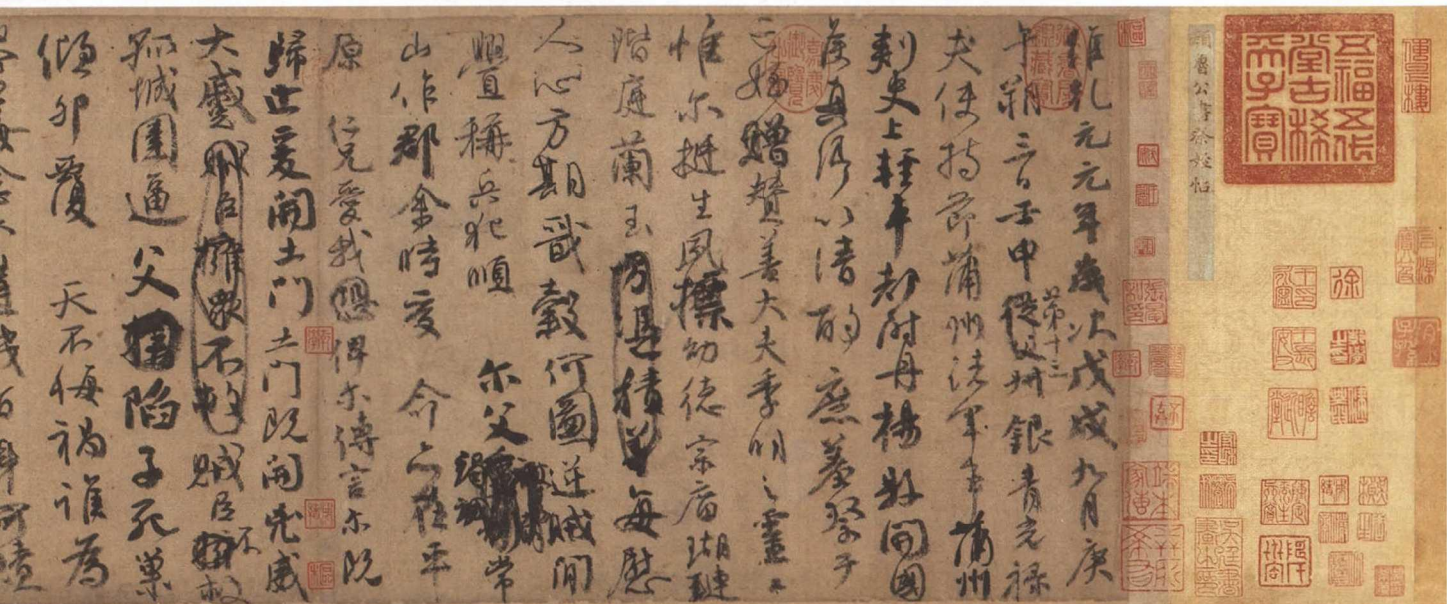 五福五代堂古稀天子寶
顏魯公書祭姪帖
維乾元元年歲次戊戌九月庚
午朔三日壬申第十三從父銀青光祿
夫使持節蒲州諸軍事蒲州
刺史上輕車都尉丹楊縣開國
侯真卿以清酌庶羞祭于
亡姪贈贊善大夫季明之靈曰
惟爾挺生夙標幼德宗廟瑚璉
階庭蘭玉方憑積善每慰
人心方期戩穀何圖逆賊間
釁稱兵犯順爾父竭誠常
山作郡余時受命亦在平
原仁兄愛我恐俾爾傳言爾既
歸止爰開土門土門既開凶威
大蹙賊臣擁眾不救賊臣不救
孤城圍逼父擒陷子死巢
傾卵覆天不悔禍誰為